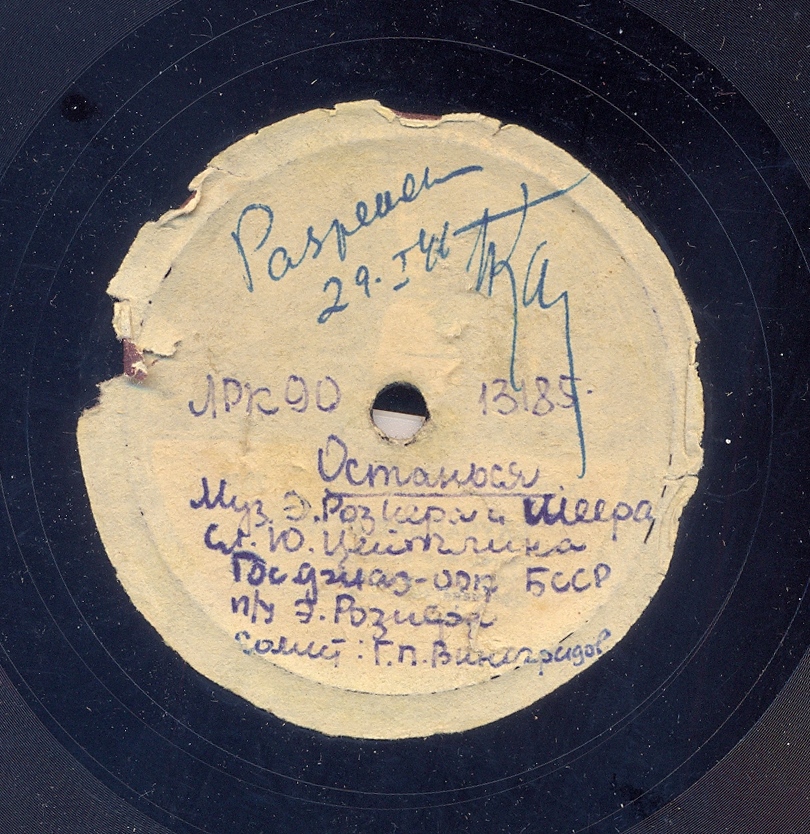 Разрешен
29. I 46
ЛРК 90 13185.
Останься
Муз. Э. Рознера и Шеера
Сл. Ю. Цейтлина
Госджаз-орк БССР
п/у Э. Рознера
солист: Г.П. Виноградов